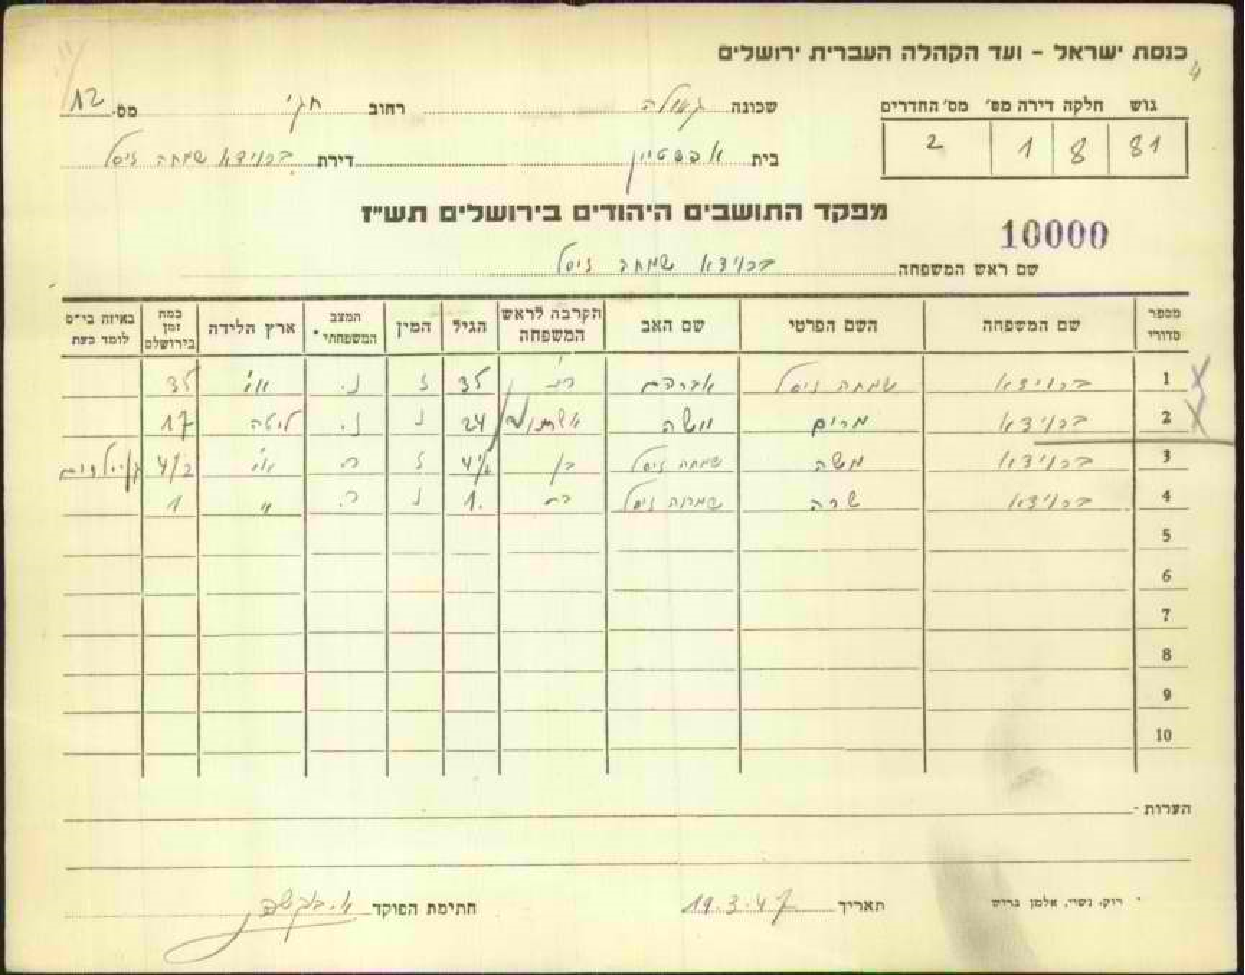 כנסת ישראל - ועד הקהלה העברית ירושלים
גוש חלקה דירה מס' מס' החדרים
81 8 1 2
שכונה גאולה רחוב חגי מס. 12
בית אפשטיין דירת ברוידא שמחה זיסל
מפקד התושבים היהודים בירושלים תש"ז
10000
שם ראש המשפחה ברוידא שמחה זיסל
מספר סדורי שם המשפחה השם הפרטי שם האב הקרבה לראש המשפחה הגיל המין המצב המשפחתי* ארץ הלידה כמה זמן בירושלם באיזה בי"ס לומד כעת
1 ברוידא שמחה זיסל אברהם 35 ז נ. א"י 35
2 ברוידא מרים משה אשתו 24 נ נ. ליטה 17
3 ברוידא משה שמחה זיסל בן 4½ ז ר. א"י 4½ גן ילדים
4 ברוידא שרה שמחה זיסל בת 1. נ ר. " 1
5
6
7
8
9
10
הערות -
תאריך 19.3.47 חתימת הפוקד
דוק. גשר, אלמן בריש